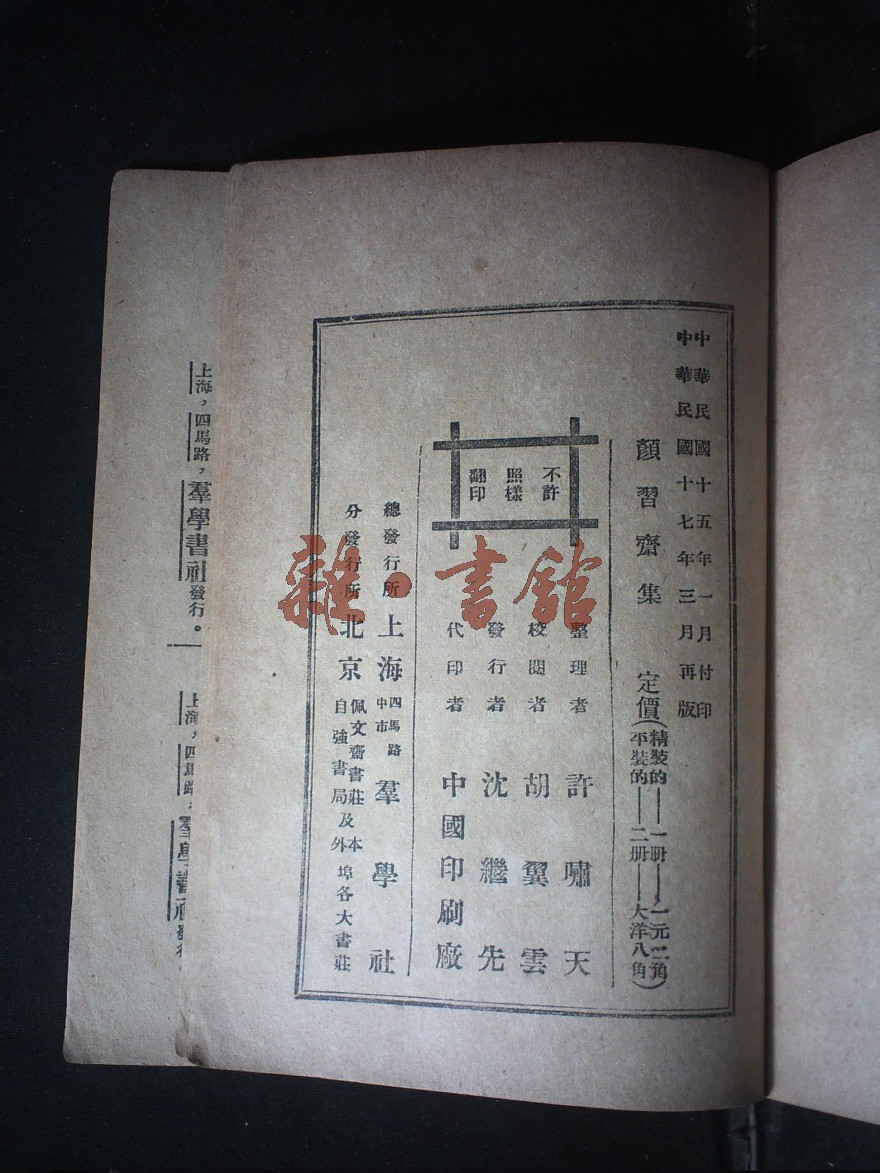 中華民國十五年一月付印
中華民國十七年三月再版
顏習齋集
定價(精裝的——一册——一元二角
平裝的——二册——大洋八角)
整理者 許嘯天
校閱者 胡翼雲
發行者 沈繼先
代印者 中國印刷廠
不許
照樣
翻印
總發行所 上海 四馬路中市 羣學社
分發行所 北京 佩文齋書莊 自強書局 及本外埠各大書莊
雜·書館
上海，四馬路，羣學書社發行。
上海，四馬路，羣學書社發行